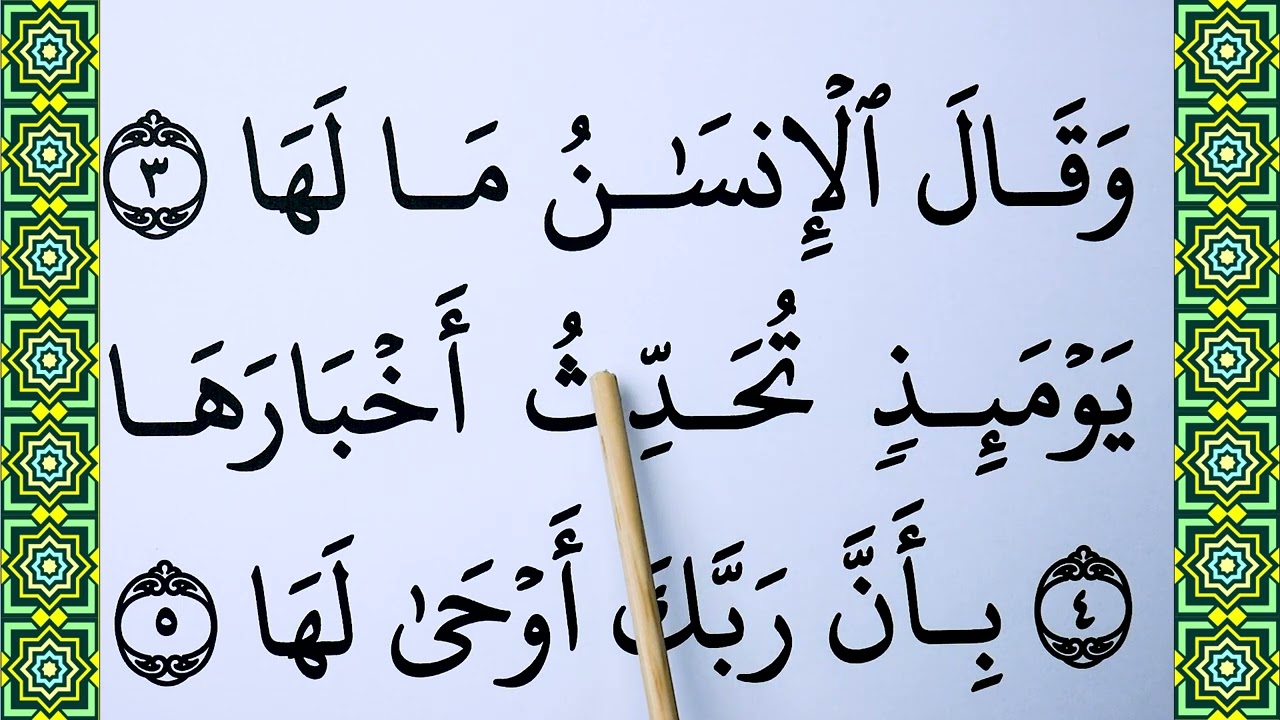 وَقَالَ ٱلْإِنسَـٰنُ مَا لَهَا ٣
يَوْمَئِذٍ تُحَدِّثُ أَخْبَارَهَا
٤ بِأَنَّ رَبَّكَ أَوْحَىٰ لَهَا ٥